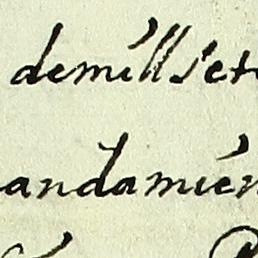 demill sete
andamien